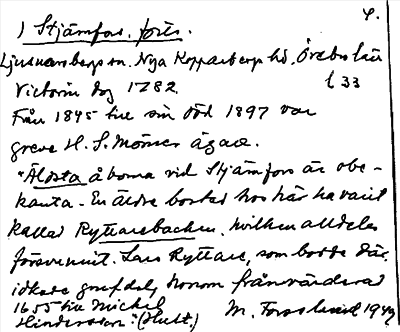 4.
) Stjärnfors. forts.
Ljusnarsbergs sn. Nya Kopparbergs hd. Örebro län
Victorin dog 1782. l 33
Från 1895 till sin död 1897 var
greve H. S. Mörner ägare.
"Äldsta åborna vid Stjärnfors är obe-
kanta. En äldre bostad hos här ha varit
kallad Ryttarebacken, hvilken alldeles
försvunnit. Lars Ryttare, som bodde där,
idkade grufdel, honom frånvärderad
1655 till Michel
Hindersson." (Hult.) M. Forslund 1949